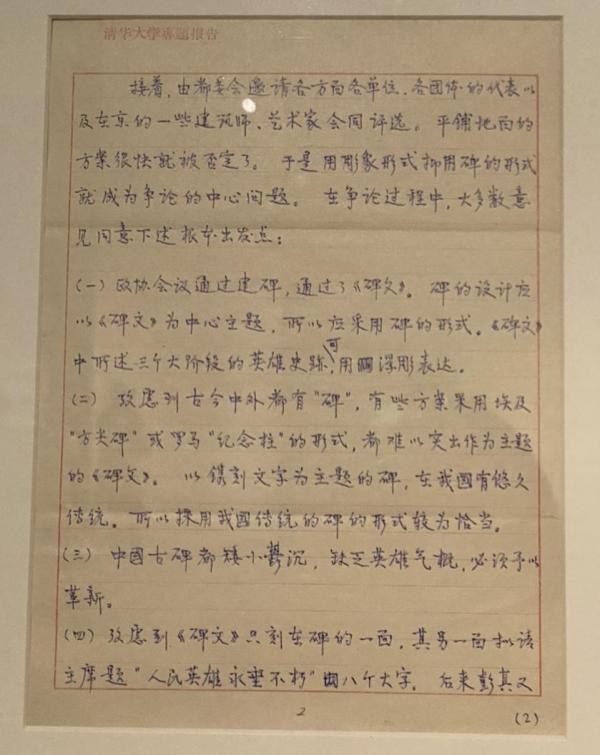 清华大学专题报告
接着，由都委会邀请各方面各单位、各团体的代表以
及在京的一些建筑师、艺术家会同评选。平铺地面的
方案很快就被否定了。于是用彫象形式抑用碑的形式
就成为争论的中心问题。在争论过程中，大多数意
见同意下述根本出发点：
(一) 政协会议通过建碑，通过了《碑文》。碑的设计应
以《碑文》为中心主题，所以应采用碑的形式。《碑文》
中所述三个大阶段的英雄史跡，可用浮彫表达。
(二) 攷虑到古今中外都有"碑"，有些方案采用埃及
"方尖碑"或罗马"纪念柱"的形式，都难以突出作为主题
的《碑文》。以镌刻文字为主题的碑，在我國有悠久
传统。所以採用我國传统的碑的形式较为恰当。
(三) 中國古碑都矮小鬱沉，缺乏英雄气概，必须予以
革新。
(四) 攷虑到《碑文》只刻在碑的一面，其另一面拟请
主席题"人民英雄永垂不朽"八个大字。后来彭真又
2
(2)